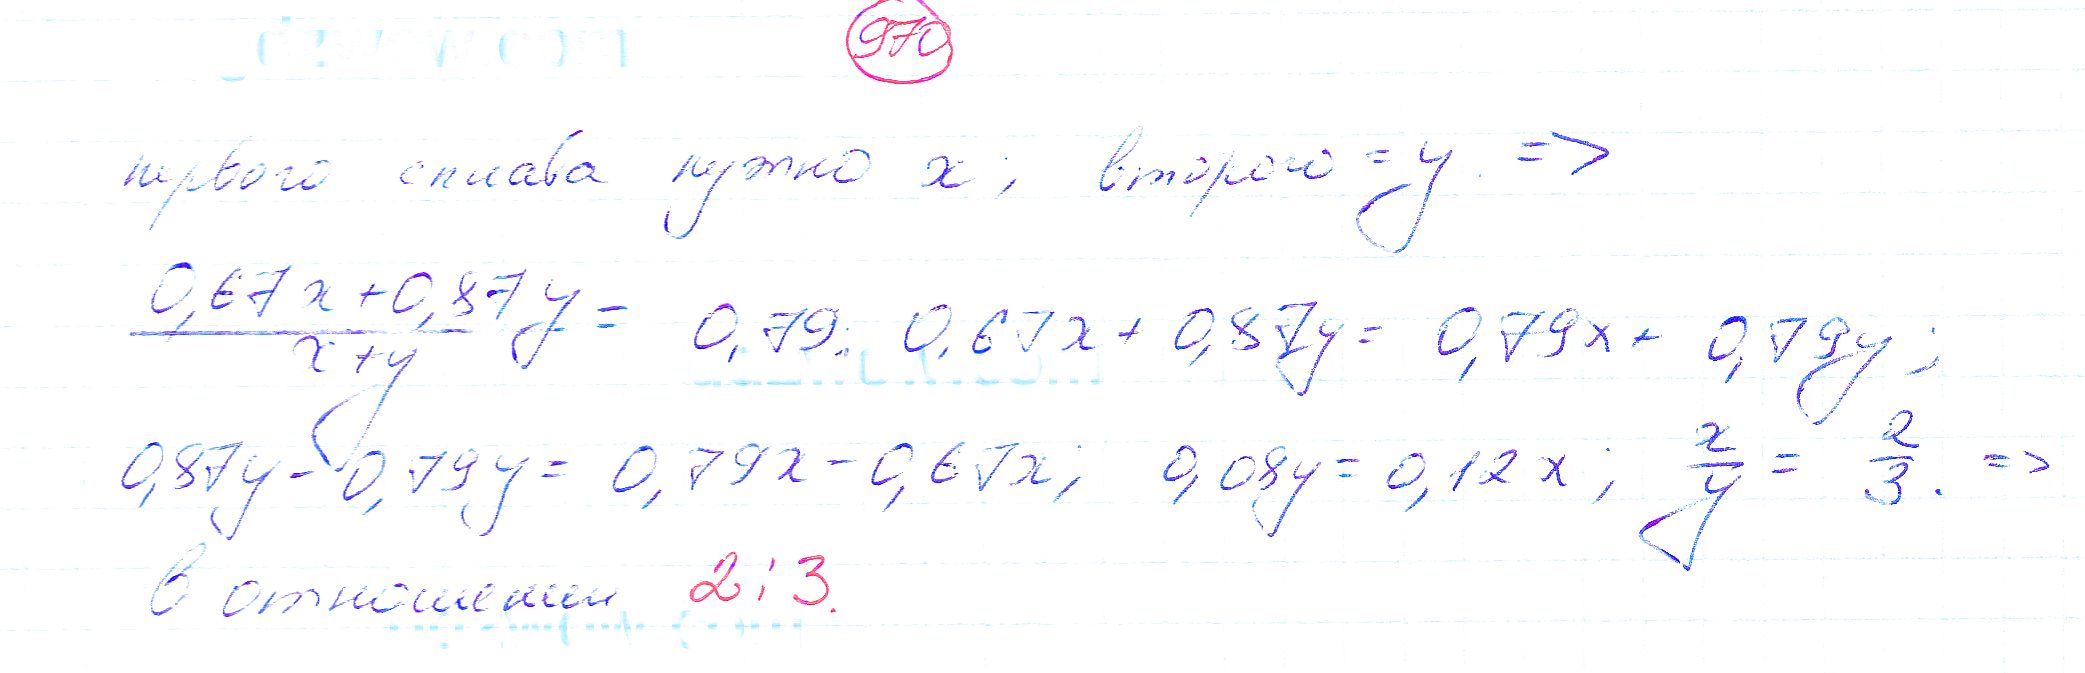 970
первого сплава нужно x; второго = y. =>
0,67x+0,87y / x+y = 0,79; 0,67x + 0,87y = 0,79x + 0,79y;
0,87y - 0,79y = 0,79x - 0,67x; 0,08y = 0,12x; x/y = 2/3. =>
в отношении 2:3.